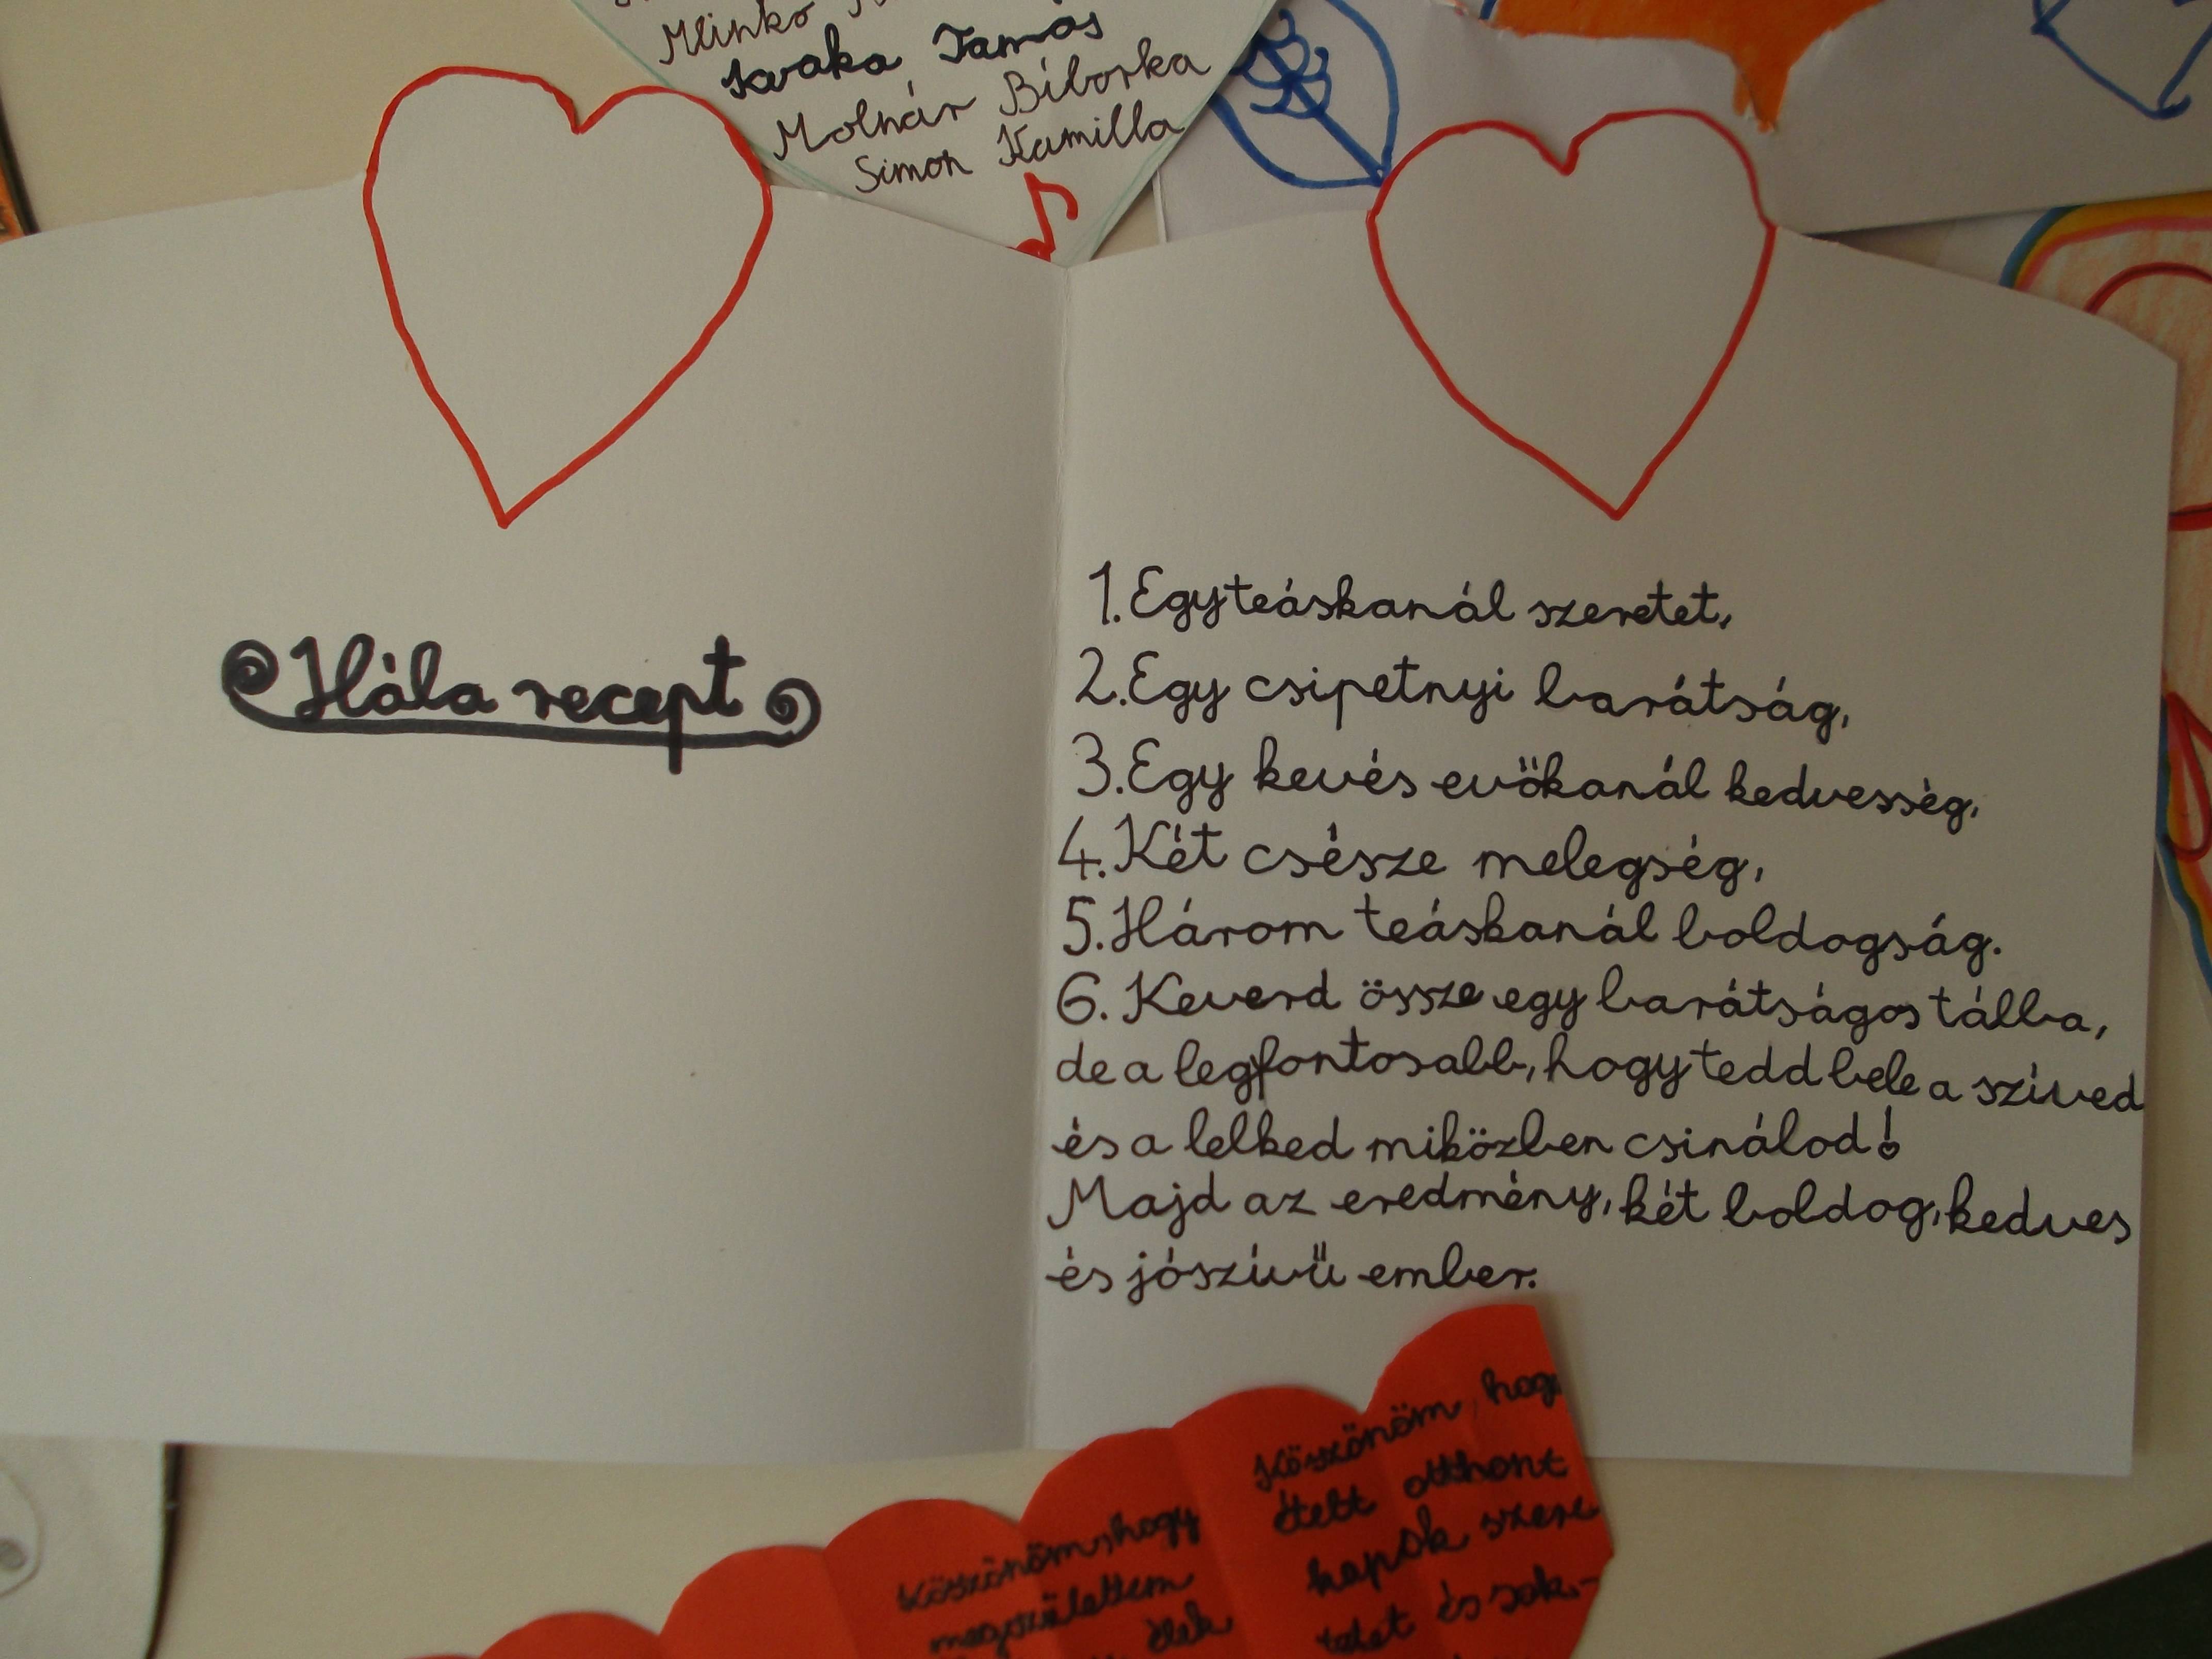 Mlinkó
Kvaka Tamás
Molnár Bíborka
Simon Kamilla
Hála recept
1. Egy teáskanál szeretet,
2. Egy csipetnyi barátság,
3. Egy kevés evőkanál kedvesség,
4. Két csésze melegség,
5. Három teáskanál boldogság.
6. Keverd össze egy barátságos tálba,
de a legfontosabb, hogy tedd bele a szíved
és a lelked miközben csinálod!
Majd az eredmény, két boldog, kedves
és jószívű ember.
Köszönöm, hogy
megszülettem
élek
Köszönöm, hog
ételt otthont
kapok szere
tetet és sok-